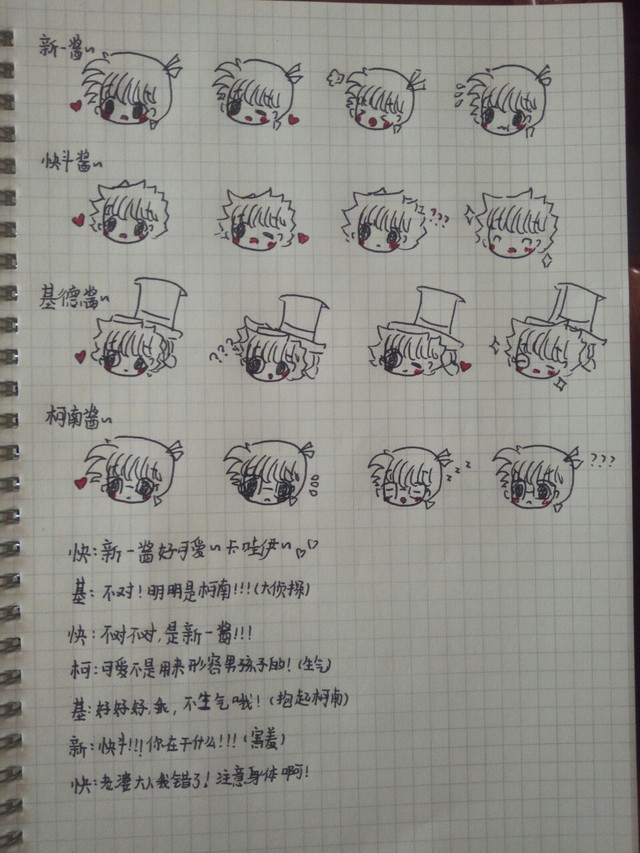 新一酱~
快斗酱~
???
基德酱~
???
柯南酱~
zzz
???
快:新一酱好可爱~卡哇伊~
基:不对!明明是柯南!!!(大侦探)
快:不对不对,是新一酱!!!
柯:可爱不是用来形容男孩子的!(生气)
基:好好好,乖,不生气哦!(抱起柯南)
新:快斗!!!你在干什么!!!(害羞)
快:老婆大人我错了!注意身体啊!